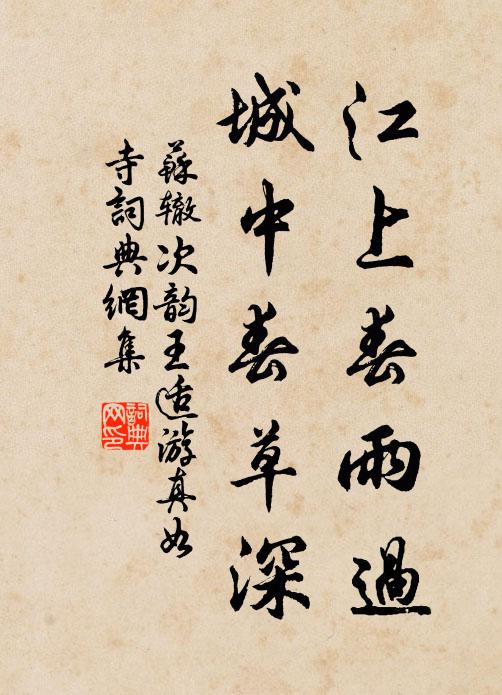 江上春雨過
城中春草深
蘇轍次韵王适游真如
寺詞典網集
詞典
网印